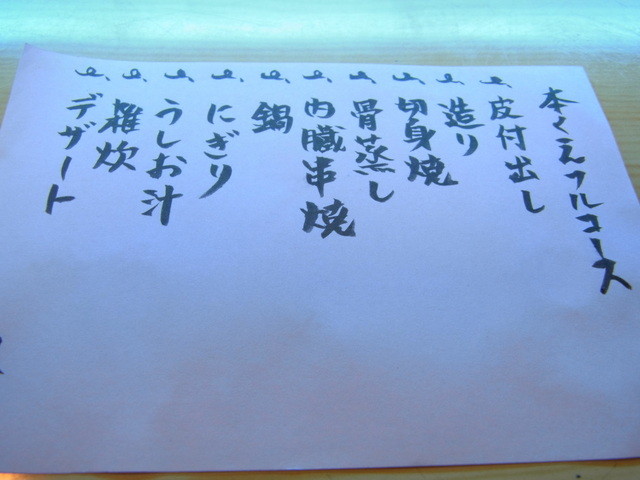 本くえフルコース
一、皮付出し
一、造り
一、切身焼
一、骨蒸し
一、内臓串焼
一、鍋
一、にぎり
一、うしお汁
一、雑炊
一、デザート